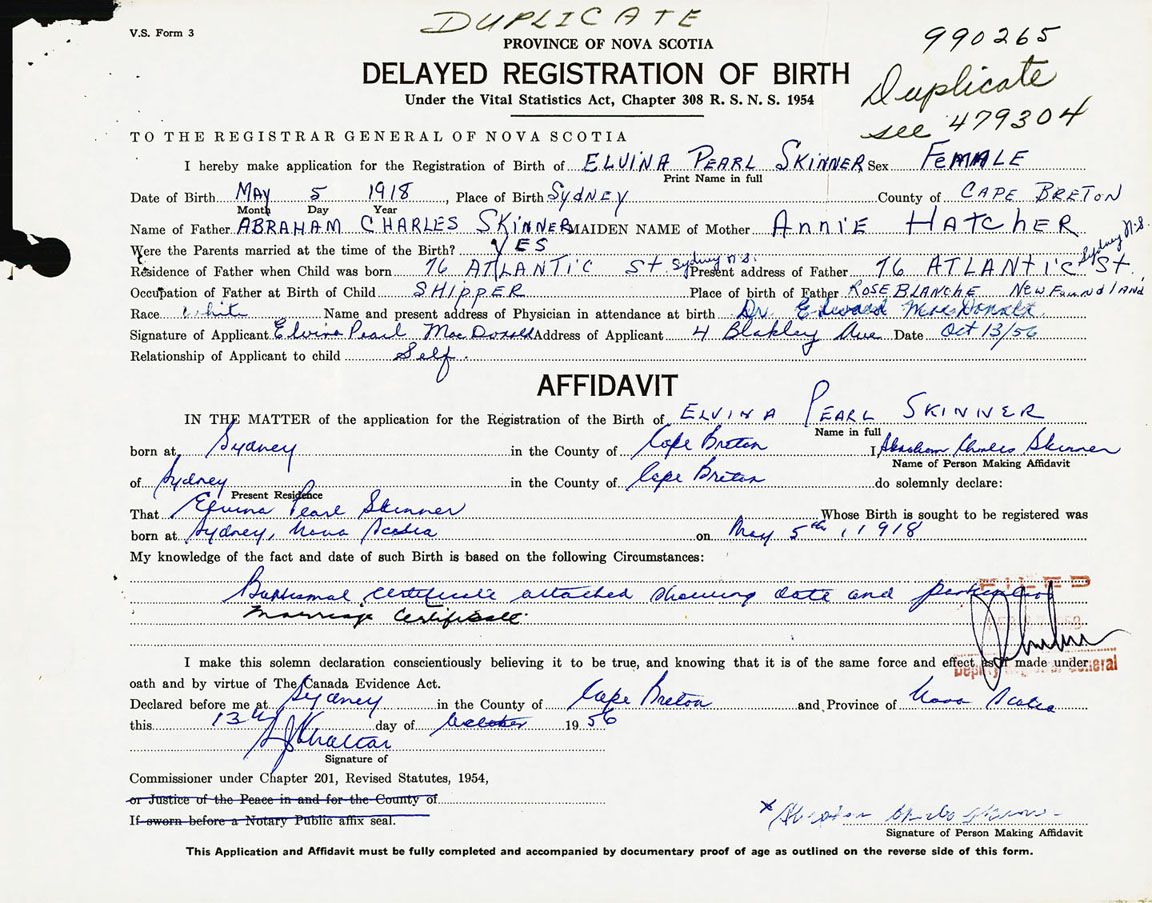 DUPLICATE
V.S. Form 3
PROVINCE OF NOVA SCOTIA
990265
DELAYED REGISTRATION OF BIRTH
Duplicate
Under the Vital Statistics Act, Chapter 308 R. S. N. S. 1954
see 479304
TO THE REGISTRAR GENERAL OF NOVA SCOTIA
I hereby make application for the Registration of Birth of ELVINA PEARL SKINNER Sex FEMALE
Print Name in full
Date of Birth MAY 5 1918, Place of Birth SYDNEY County of CAPE BRETON
Month Day Year
Name of Father ABRAHAM CHARLES SKINNER MAIDEN NAME of Mother ANNIE HATCHER
Were the Parents married at the time of the Birth? YES
Residence of Father when Child was born 76 ATLANTIC St Sydney N.S. Present address of Father 76 ATLANTIC St. Sydney N.S.
Occupation of Father at Birth of Child SHIPPER Place of birth of Father ROSE BLANCHE NEWFOUNDLAND
Race White Name and present address of Physician in attendance at birth Dr. Edward MacDonald
Signature of Applicant Elvina Pearl MacDonald Address of Applicant 4 Blakley Ave Date Oct 13/56
Relationship of Applicant to child Self.
AFFIDAVIT
IN THE MATTER of the application for the Registration of the Birth of ELVINA PEARL SKINNER
Name in full
born at Sydney in the County of Cape Breton I, Abraham Charles Skinner
Name of Person Making Affidavit
of Sydney in the County of Cape Breton do solemnly declare:
Present Residence
That Elvina Pearl Skinner Whose Birth is sought to be registered was
born at Sydney, Nova Scotia on May 5th, 1918
My knowledge of the fact and date of such Birth is based on the following Circumstances:
FILED
Baptismal certificate attached showing date and
Marriage Certificate
I make this solemn declaration conscientiously believing it to be true, and knowing that it is of the same force and effect as if made under
Deputy Registrar General
oath and by virtue of The Canada Evidence Act.
Declared before me at Sydney in the County of Cape Breton and Province of Nova Scotia
this 13th day of October 1956
Signature of
Commissioner under Chapter 201, Revised Statutes, 1954,
or Justice of the Peace in and for the County of
If sworn before a Notary Public affix seal.
x Abraham Charles Skinner
Signature of Person Making Affidavit
This Application and Affidavit must be fully completed and accompanied by documentary proof of age as outlined on the reverse side of this form.